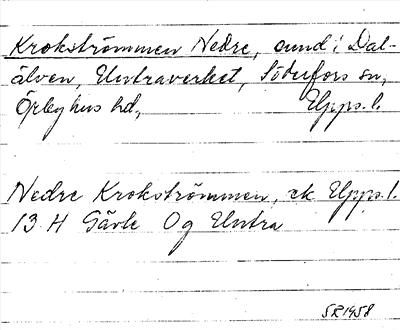 Krokströmmen Nedre, sund i Dal-
älven, Untraverket, Söderfors sn,
Örbyhus hd, Upps. l.
Nedre Krokströmmen, ek Upps. l.
13 H Gävle 0g Untra
SR 1958